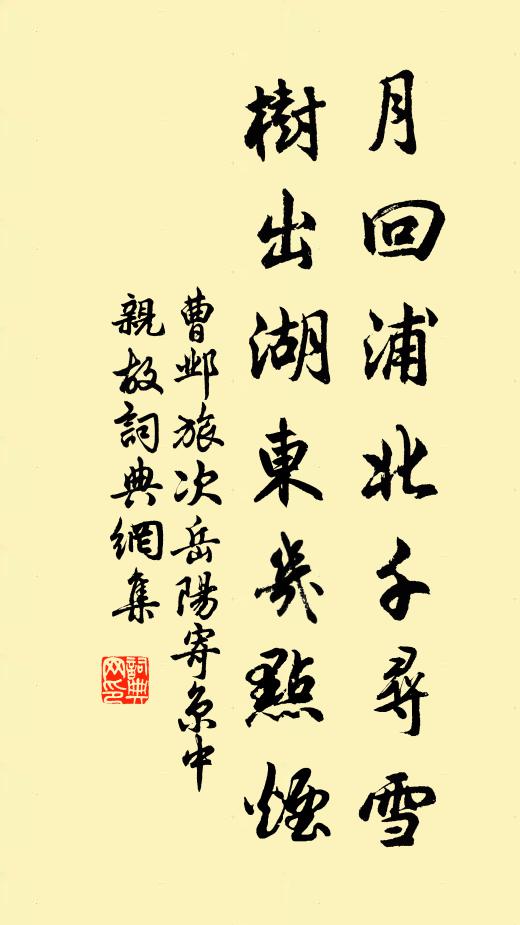 月回浦北千尋雪
樹出湖東幾點煙
曹邺旅次岳陽寄京中
親故詞典網集
詞典
网印